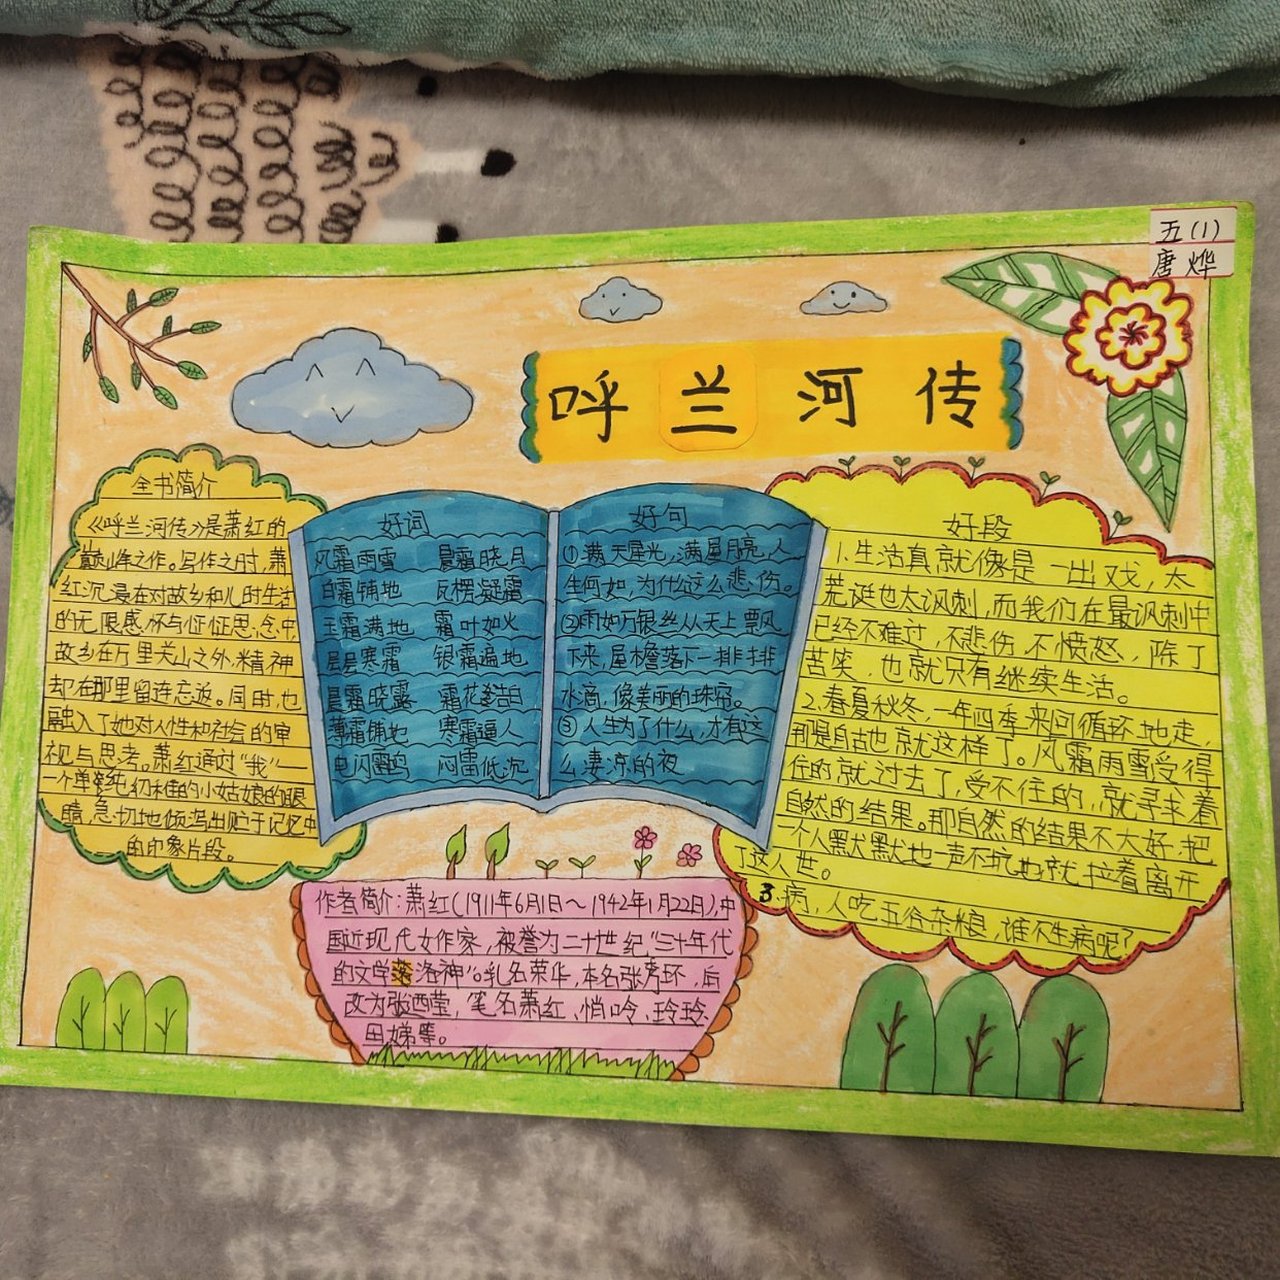 五(1)
唐烨
呼兰河传
全书简介
《呼兰河传》是萧红的
巅峰之作。写作之时,萧
红沉浸在对故乡和儿时生活
的无限感怀与怔怔思念中,
故乡在万里关山之外,精神
却在那里留连忘返。同时,也
融入了她对人性和社会的审
视与思考。萧红通过“我”一
一个单纯幼稚的小姑娘的眼
睛,急切地倾泻出贮于记忆中
的印象片段。
好词
风霜雨雪 晨霜晓月
白霜铺地 瓦楞凝霜
玉霜满地 霜叶如火
层层寒霜 银霜遍地
晨霜晓露 霜花结白
薄霜铺地 寒霜逼人
电闪雷鸣 闷雷低沉
好句
①满天星光,满屋月亮,人
生何如,为什么这么悲伤。
②雨如万银丝从天上飘
下来,屋檐落下一排排
水滴,像美丽的珠帘。
③人生为了什么,才有这
么凄凉的夜
好段
1.生活真就像是一出戏,太
荒诞也太讽刺,而我们在最讽刺中
已经不难过,不悲伤,不愤怒,除了
苦笑,也就只有继续生活。
2.春夏秋冬,一年四季来回循环地走,
那是自古也就这样了。风霜雨雪受得
住的就过去了,受不住的,就寻求着
自然的结果。那自然的结果不大好,把
一个人默默地一声不坑地就拉着离开
了这人世。
3.病,人吃五谷杂粮,谁不生病呢?
作者简介:萧红(1911年6月1日~1942年1月22日),中
国近现代女作家,被誉为二十世纪“三十年代
的文学洛神”。乳名荣华,本名张秀环,后
改为张迺莹,笔名萧红,悄吟,玲玲、
田娣等。